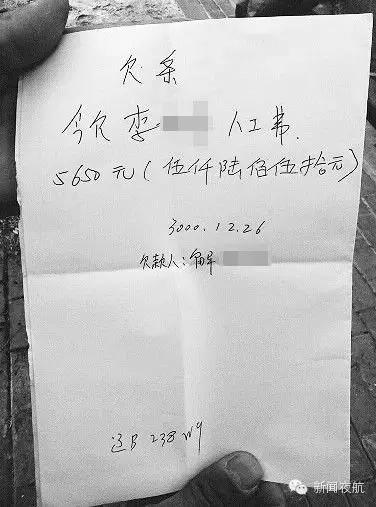 欠条
今欠李 人工费.
5650元(伍仟陆佰伍拾元)
3000.12.26
欠款人:解
辽B 238
新闻夜航